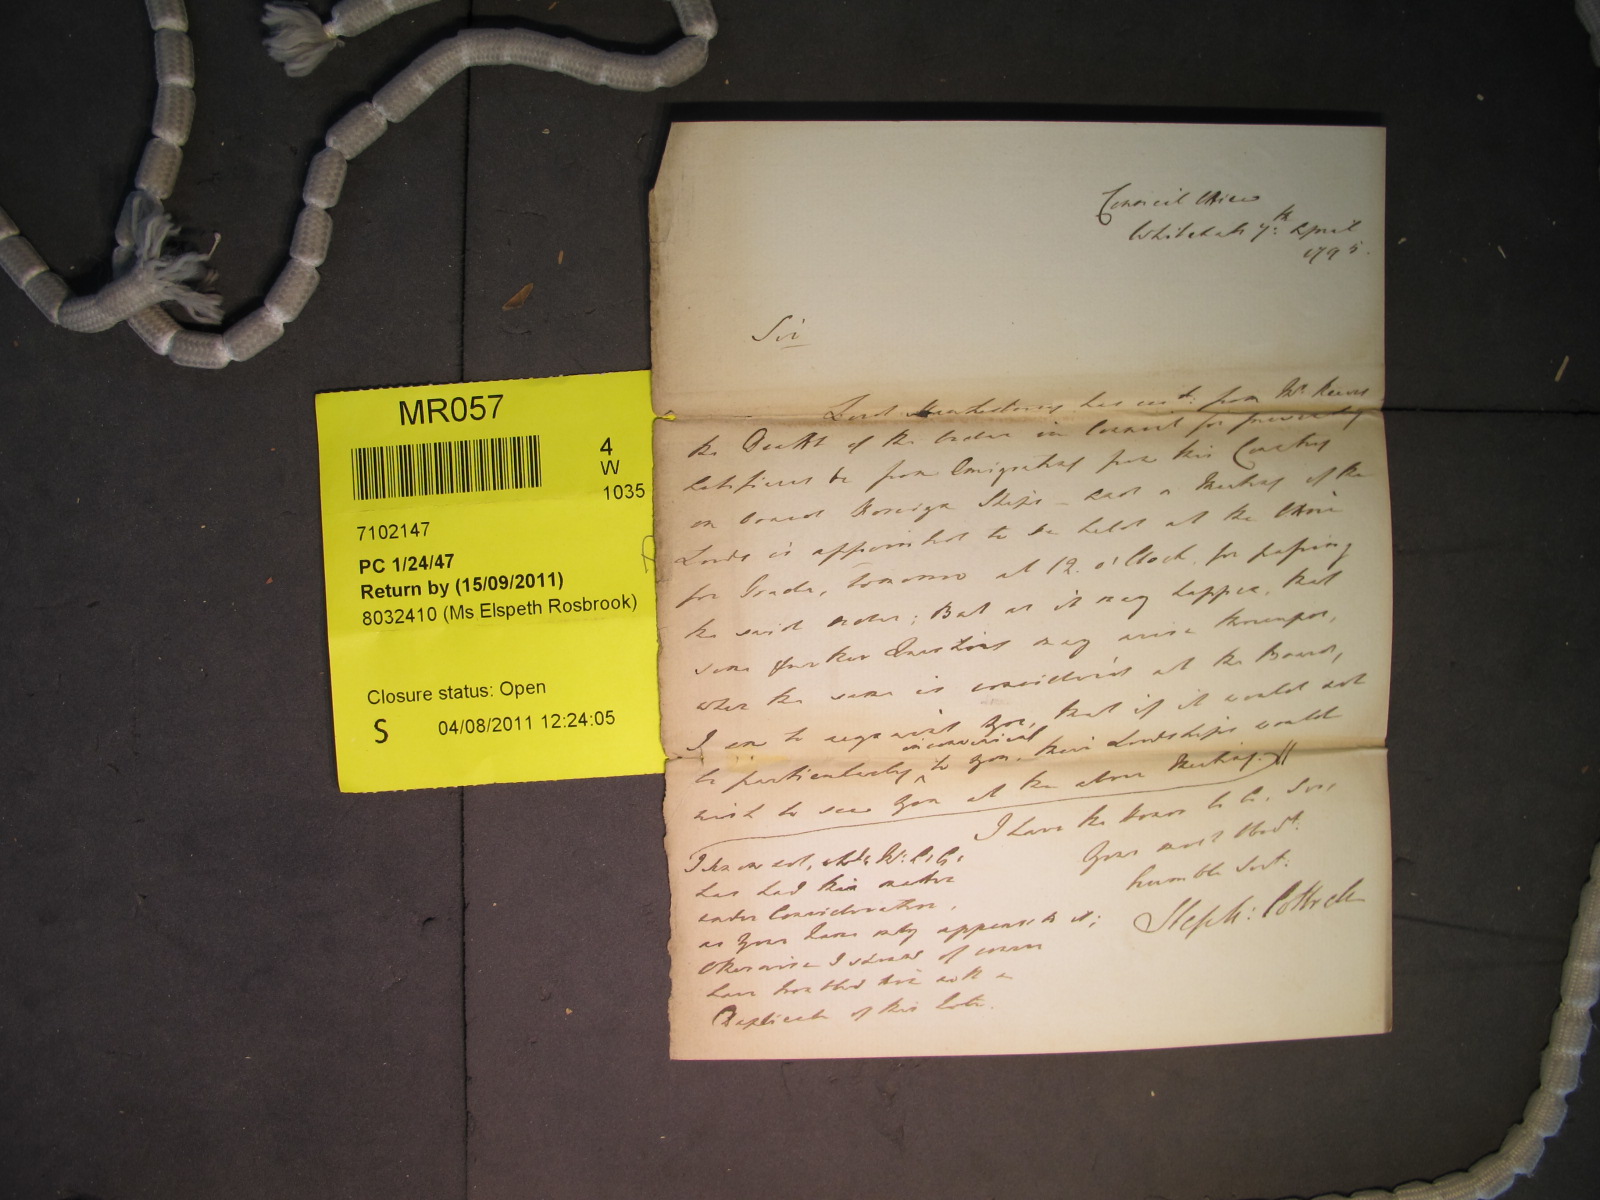 MR057
4
W
1035
7102147
PC 1/24/47
Return by (15/09/2011)
8032410 (Ms Elspeth Rosbrook)
Closure status: Open
S 04/08/2011 12:24:05
Council Office
Whitehall 7th April
1795.
Sir
Lord has recd. from Mr. Reeves
the Draft of the Order in Council for preventing
from Emigrating from this Country
on board Foreign Ships - and a Meeting of the
Lords is appointed to be held at the Office
for Trade, tomorrow at 12. o'Clock, for passing
the said Order; But as it may happen, that
some further Questions may arise thereupon,
when the same is considered at the Board,
I am to acquaint You, that if it would not
be particularly inconvenient to You, their Lordships would
wish to see You at the above Meeting.
I have the Honor to be, Sir,
Your most Obedt.
humble Servt.
Steph: Cottrell
I know not,
has had this matter
under Consideration,
as Your Name only appears to it;
Otherwise I should of course
have troubled him with a
Duplicate of this Letter.